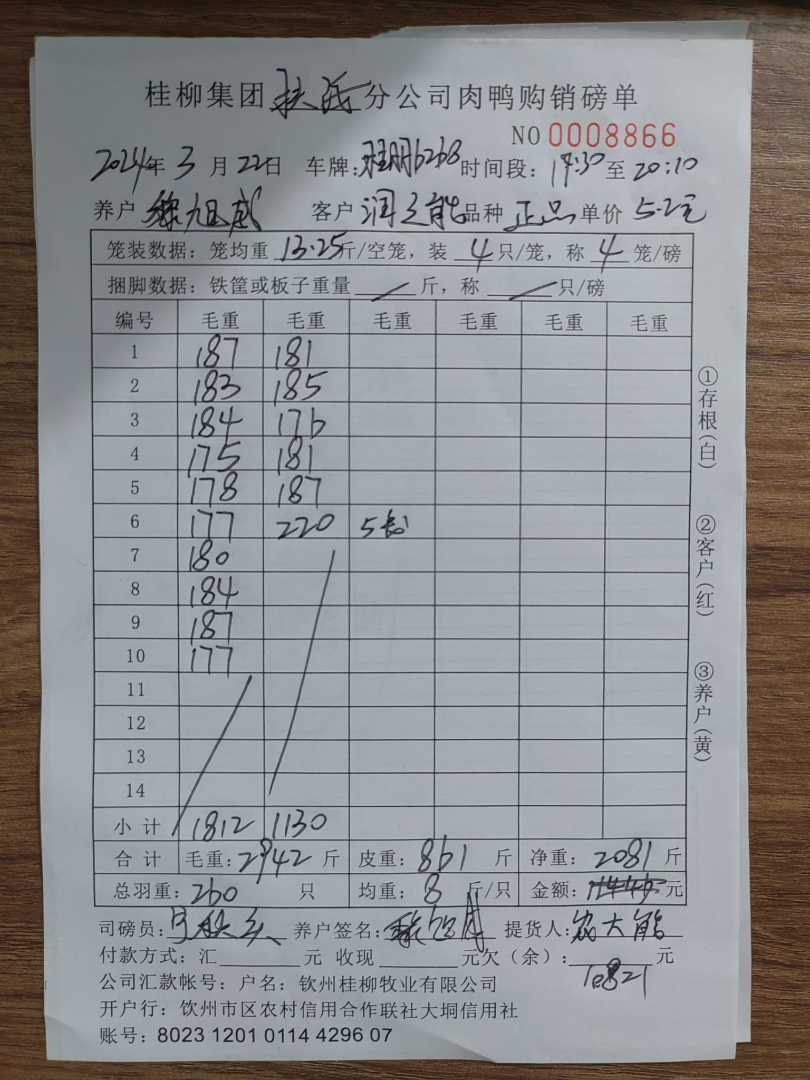 桂柳集团 分公司肉鸭购销磅单
NO 0008866
2024年 3月 22日 车牌: 6268 时间段: 19:30 至 20:10
养户 旭威 客户 润之能 品种 正品 单价 5.2元
笼装数据: 笼均重 13.25 斤/空笼, 装 4 只/笼, 称 4 笼/磅
捆脚数据: 铁筐或板子重量 / 斤, 称 / 只/磅
编号 毛重 毛重 毛重 毛重 毛重 毛重
1 187 181
2 183 185
3 184 176
4 175 181
5 178 187
6 177 220 5
7 180
8 184
9 187
10 177
11
12
13
14
小计 1812 1130
合计 毛重: 2942 斤 皮重: 861 斤 净重: 2081 斤
总羽重: 260 只 均重: 8 斤/只 金额: 元
司磅员: 养户签名: 提货人: 大能
付款方式: 汇 元 收现 元欠(余): 元
10821
公司汇款帐号: 户名: 钦州桂柳牧业有限公司
开户行: 钦州市区农村信用合作联社大垌信用社
账号: 8023 1201 0114 4296 07
①存根(白)
②客户(红)
③养户(黄)